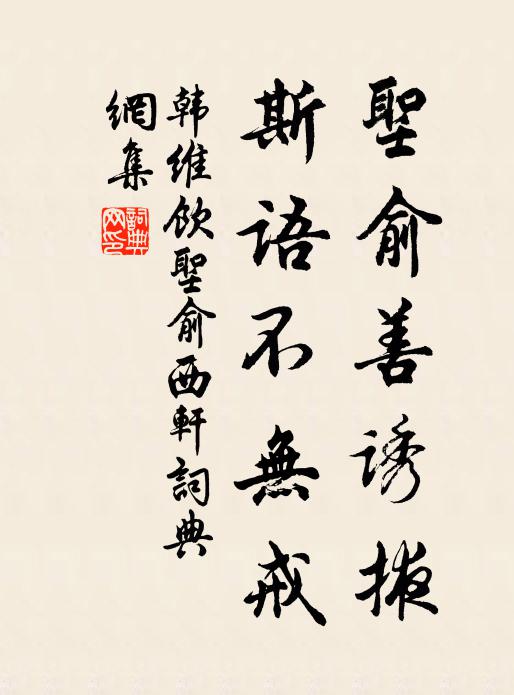 聖俞善诱掖
斯语不無戒
韩维饮聖俞西軒詞典
網集
詞典
网印